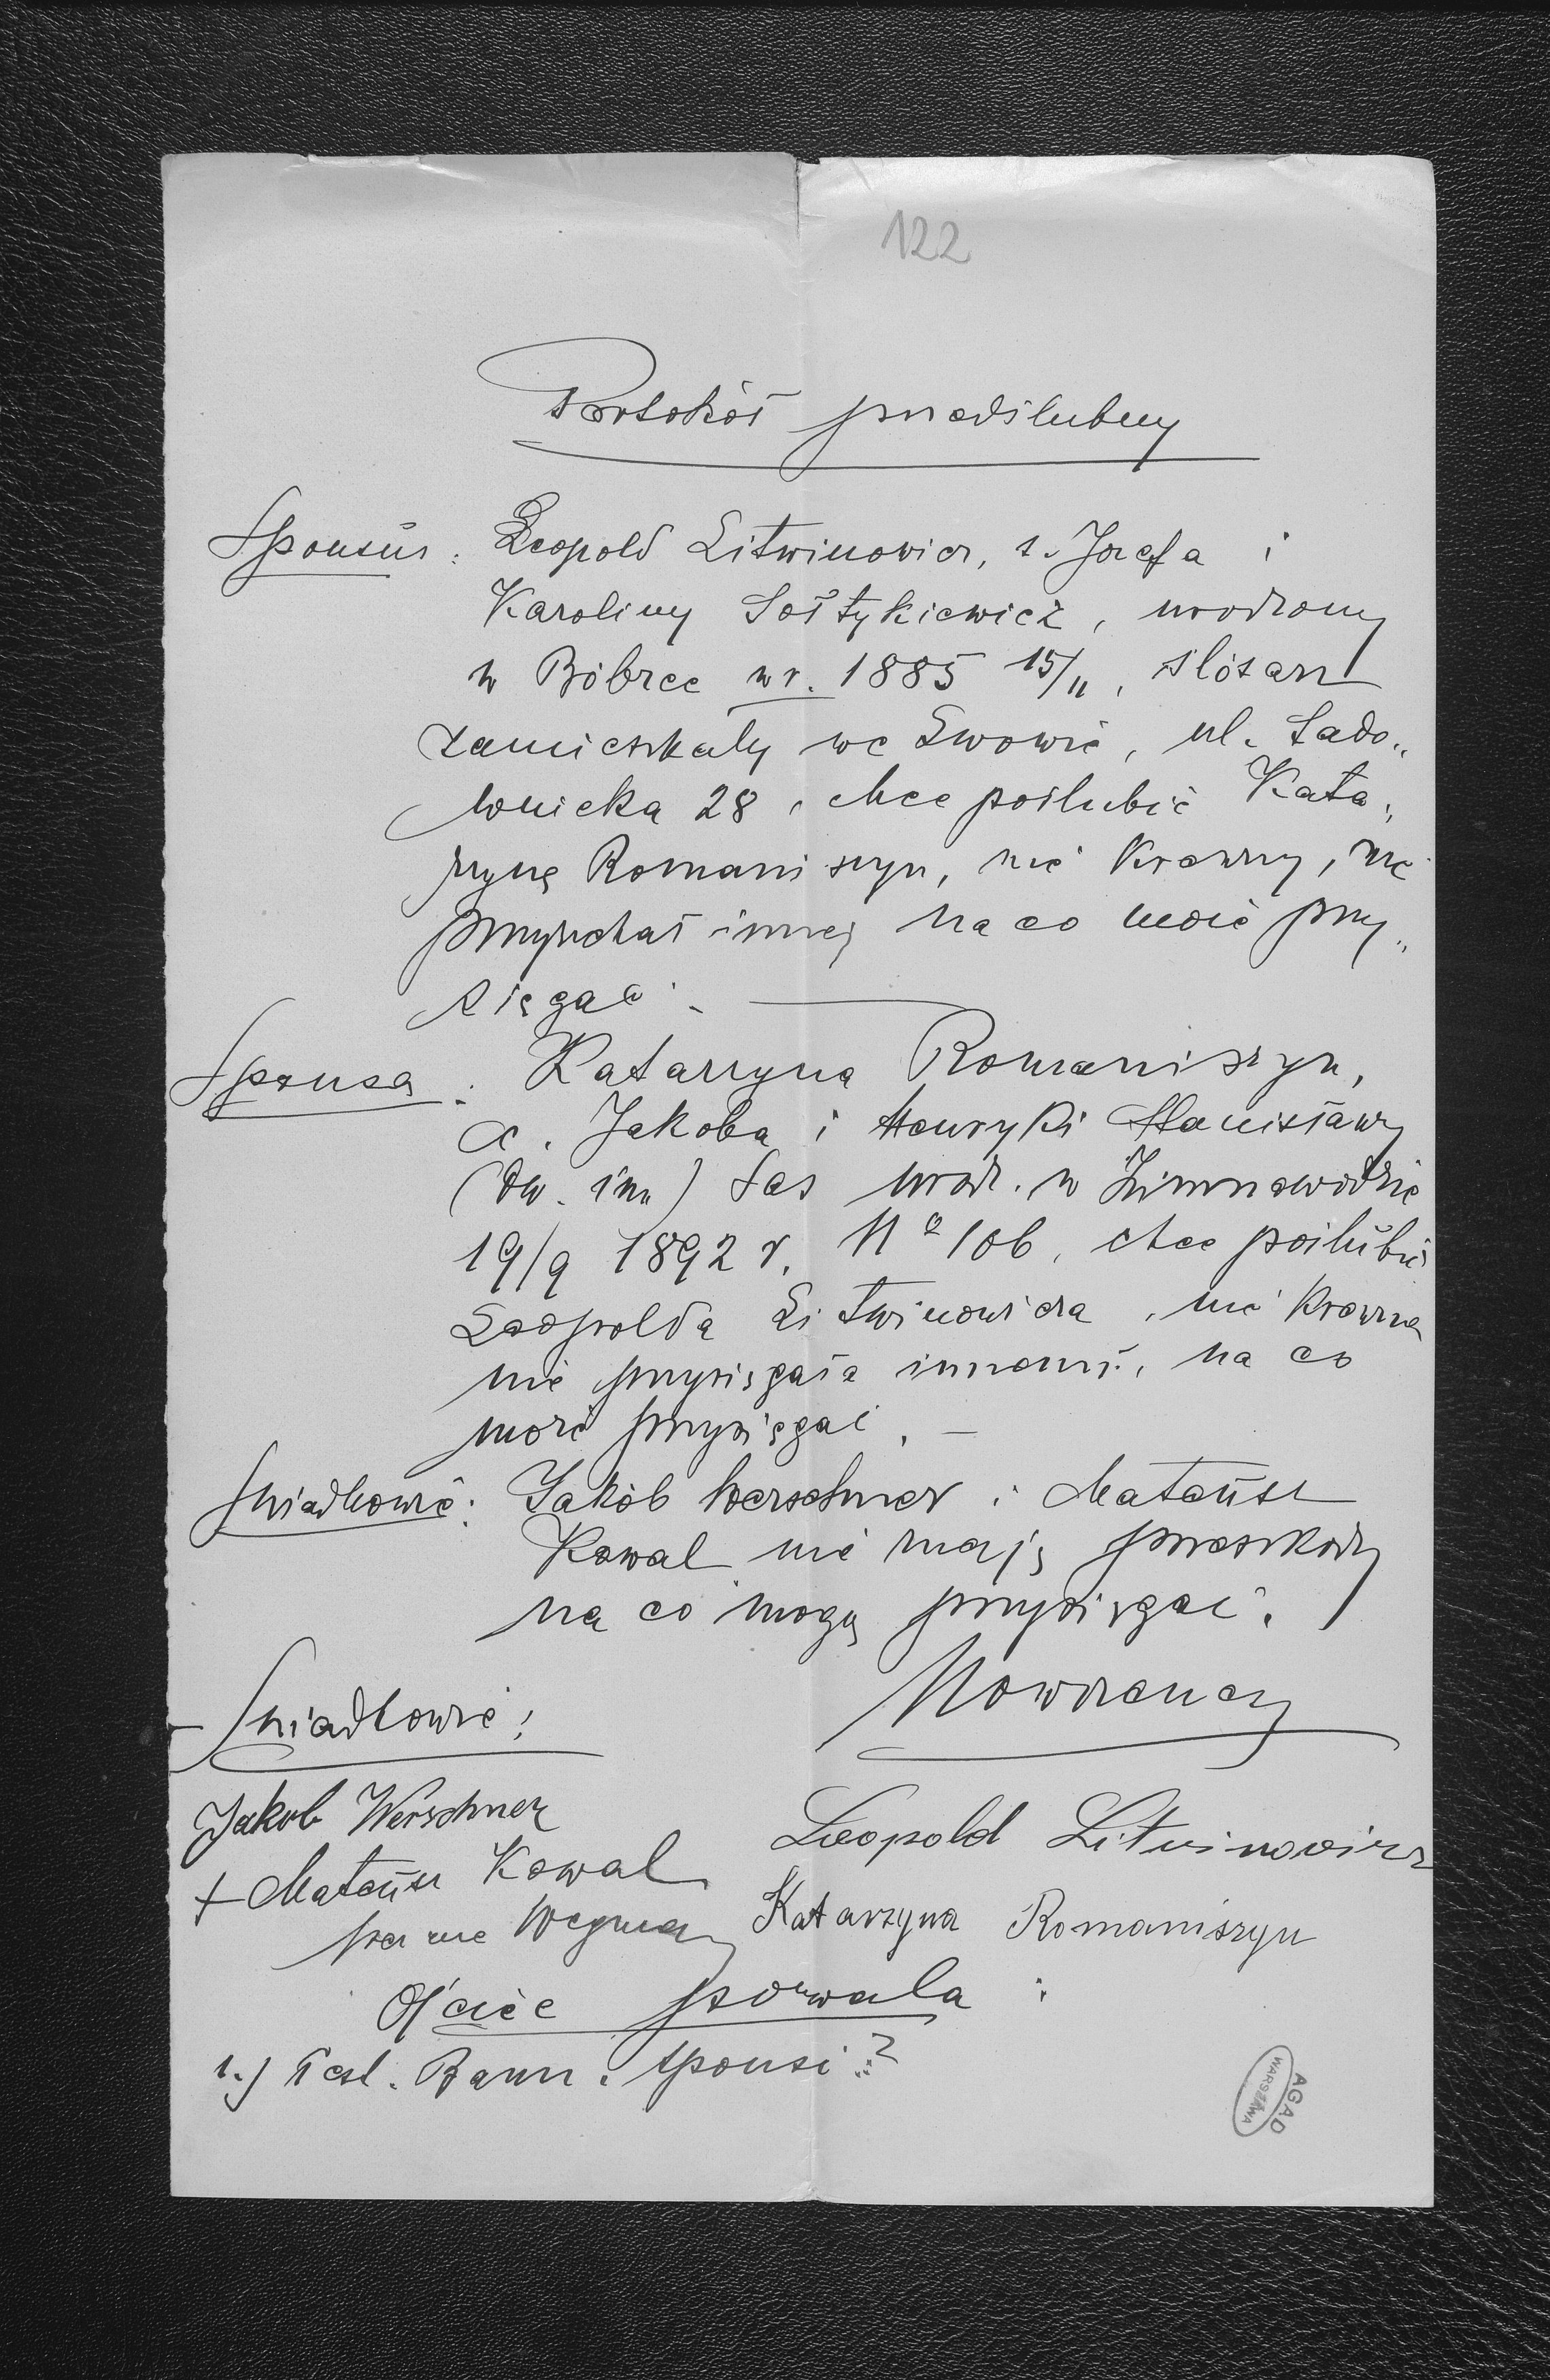 122
Protokół przedślubny
Sponsus: Leopold Litwinowicz, s. Józefa i
Karoliny Sołtykiewicz, urodzony
w Bóbrce w r. 1885 15/11, ślósarz
zamieszkały we Lwowie, ul. Sado„
wnicka 28, chce poślubić Kata„
rzynę Romaniszyn, nie krewny, nie
przyrzekał innej na co może przy„
sięgać. —
Sponsa: Katarzyna Romaniszyn,
c. Jakoba i Henryki Stanisławy
(dw. im.) Las urodz. w Zimnowodzie
19/9 1892 r. No 106, chce poślubić
Leopolda Litwinowicza, nie krewna
nie przysięgała innemu, na co
może przysięgać. —
Świadkowie: Jakób Werschner i Mateusz
Kowal nie mają przeszkody
na co mogą przysięgać.
Świadkowie: Nowożeńcy
Jakob Werschner Leopold Litwinowicz
+ Mateusz Kowal Katarzyna Romaniszyn
Ojciec pozwala:
1.) Test. Bann. sponsi?
AGAD
WARSZAWA